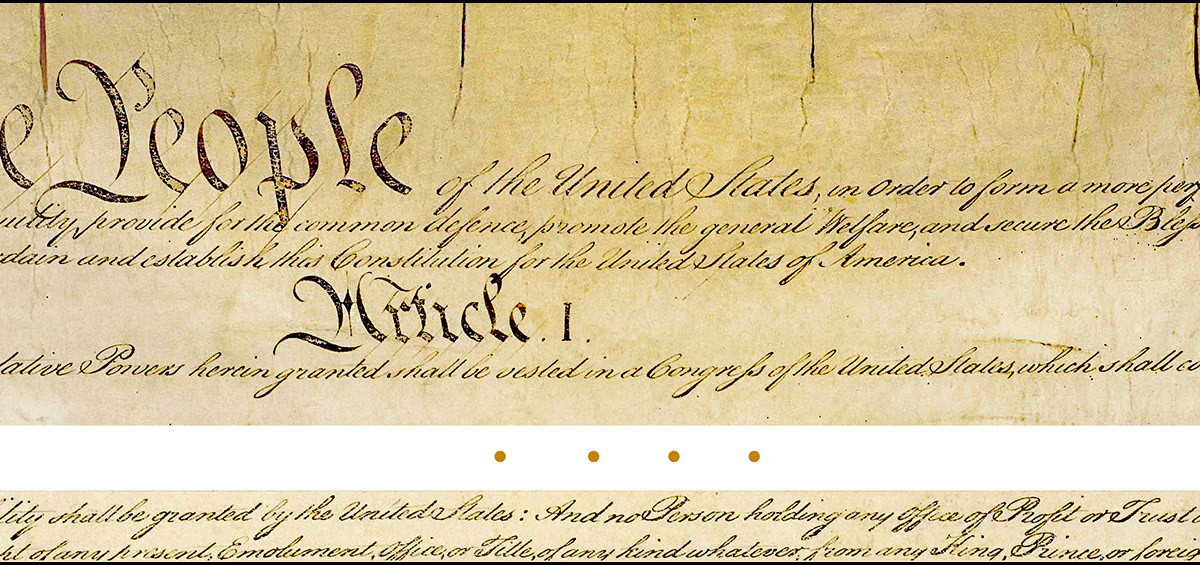 e People of the United States, in Order to form a more per
uility, provide for the common defence, promote the general Welfare, and secure the Bless
rdain and establish this Constitution for the United States of America.
Article. I.
lative Powers herein granted shall be vested in a Congress of the United States, which shall co
ility shall be granted by the United States: And no Person holding any Office of Profit or Trust
pt of any present, Emolument, Office, or Title, of any kind whatever, from any King, Prince, or foreig